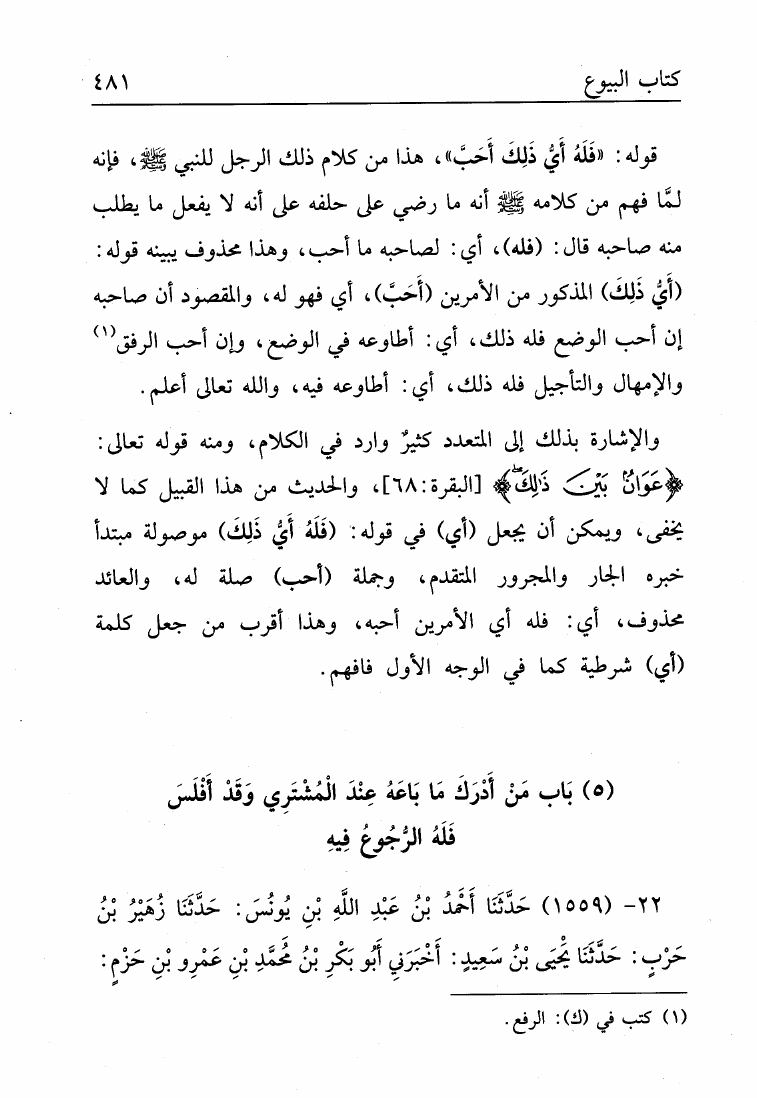 كتاب البيوع ٤٨١
قوله: «فَلَهُ أَيُّ ذَلِكَ أَحَبَّ»، هذا من كلام ذلك الرجل للنبي ﷺ، فإنه
لمَّا فهم من كلامه ﷺ أنه ما رضي على حلفه على أنه لا يفعل ما يطلب
منه صاحبه قال: (فله)، أي: لصاحبه ما أحب، وهذا محذوف يبينه قوله:
(أَيُّ ذَلِكَ) المذكور من الأمرين (أَحَبَّ)، أي فهو له، والمقصود أن صاحبه
إن أحب الوضع فله ذلك، أي: أطاوعه في الوضع، وإن أحب الرفق(١)
والإمهال والتأجيل فله ذلك، أي: أطاوعه فيه، والله تعالى أعلم.
والإشارة بذلك إلى المتعدد كثيرٌ وارد في الكلام، ومنه قوله تعالى:
﴿عَوَانٌ بَيْنَ ذَٰلِكَ ۖ﴾ [البقرة:٦٨]، والحديث من هذا القبيل كما لا
يخفى، ويمكن أن يجعل (أي) في قوله: (فَلَهُ أَيُّ ذَلِكَ) موصولة مبتدأ
خبره الجار والمجرور المتقدم، وجملة (أحب) صلة له، والعائد
محذوف، أي: فله أي الأمرين أحبه، وهذا أقرب من جعل كلمة
(أي) شرطية كما في الوجه الأول فافهم.
(٥) بَاب مَنْ أَدْرَكَ مَا بَاعَهُ عِنْدَ الْمُشْتَرِي وَقَدْ أَفْلَسَ
فَلَهُ الرُّجُوعُ فِيهِ
٢٢- (١٥٥٩) حَدَّثَنَا أَحْمَدُ بْنُ عَبْدِ اللَّهِ بْنِ يُونُسَ: حَدَّثَنَا زُهَيْرُ بْنُ
حَرْبٍ: حَدَّثَنَا يَحْيَى بْنُ سَعِيدٍ: أَخْبَرَنِي أَبُو بَكْرِ بْنُ مُحَمَّدِ بْنِ عَمْرِو بْنِ حَزْمٍ:
(١) كتب في (ك): الرفع.